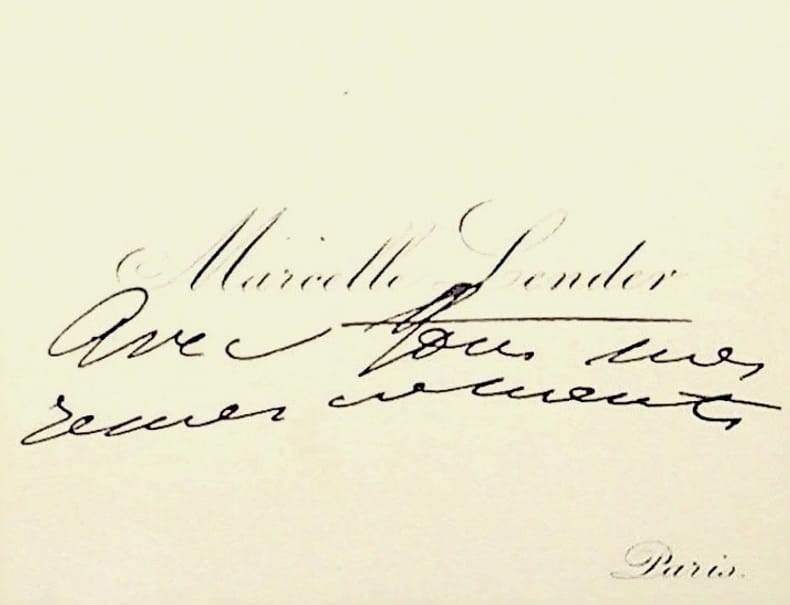 Marcelle Lender
Avec tous mes
remerciements
Paris.